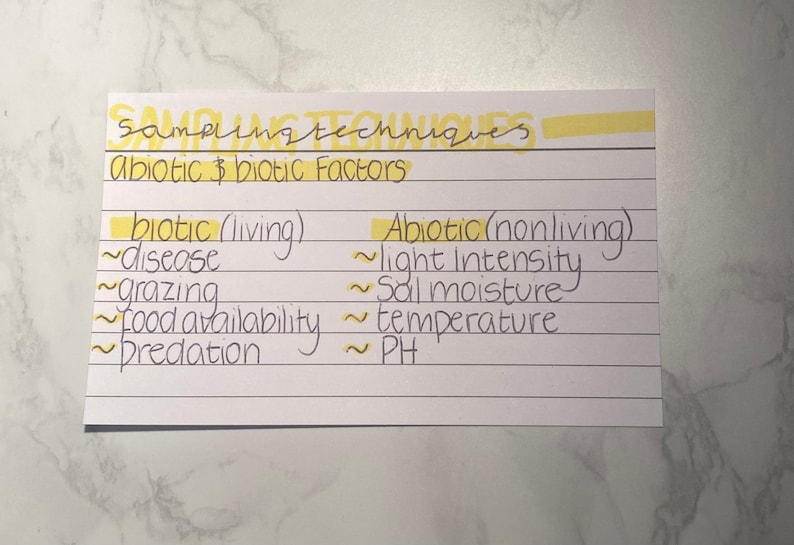 SAMPLING TECHNIQUES
sampling techniques
abiotic & biotic Factors
biotic (living) Abiotic (nonliving)
~disease ~light Intensity
~grazing ~Soil moisture
~food availability ~temperature
~predation ~PH